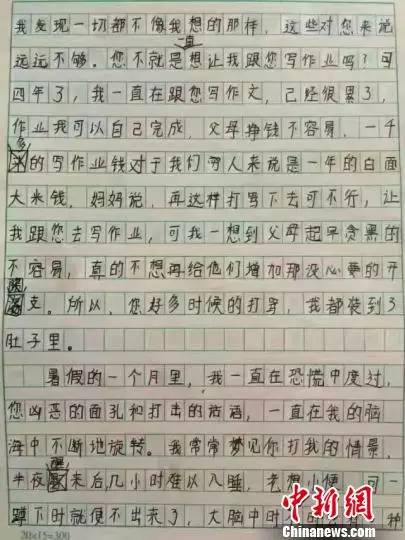 我发现一切都不像我想的那样,这些对您来说
远远不够。您不就是一直想让我跟您写作业吗?可
四年了,我一直在跟您写作文,已经很累了,
作业我可以自己完成,父母挣钱不容易,一千
多的写作业钱对于我们穷人来说是一年的白面
大米钱,妈妈说,再这样打骂下去可不行,让
我跟您去写作业,可我一想到父母起早贪黑的
不容易,真的不想再给他们增加那没必要的开
支。所以,您好多时候的打骂,我都装到了
肚子里。
暑假的一个月里,我一直在恐慌中度过,
您凶恶的面孔和打击的话语,一直在我的脑
海中不断地旋转。我常常梦见你打我的情景,
半夜醒来后几小时难以入睡,老想小便,可一
蹲下时就便不出来了,大脑中时
20×15=300
中新网